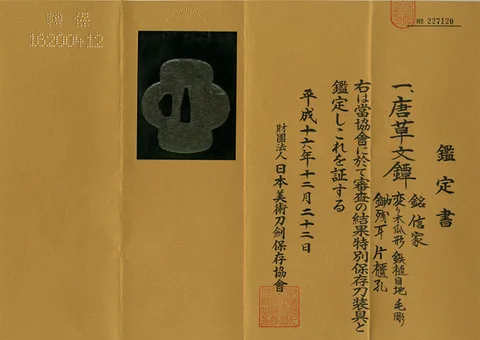 № 227120
鑑定書
一、唐草文鐔
銘 信家
変り木瓜形 鉄槌目地 毛彫
鋤残耳 片櫃孔
右は當協會に於て審査の結果特別保存刀装具と
鑑定しこれを証する
平成十六年十二月二十二日
財團法人 日本美術刀剣保存協會
16200412